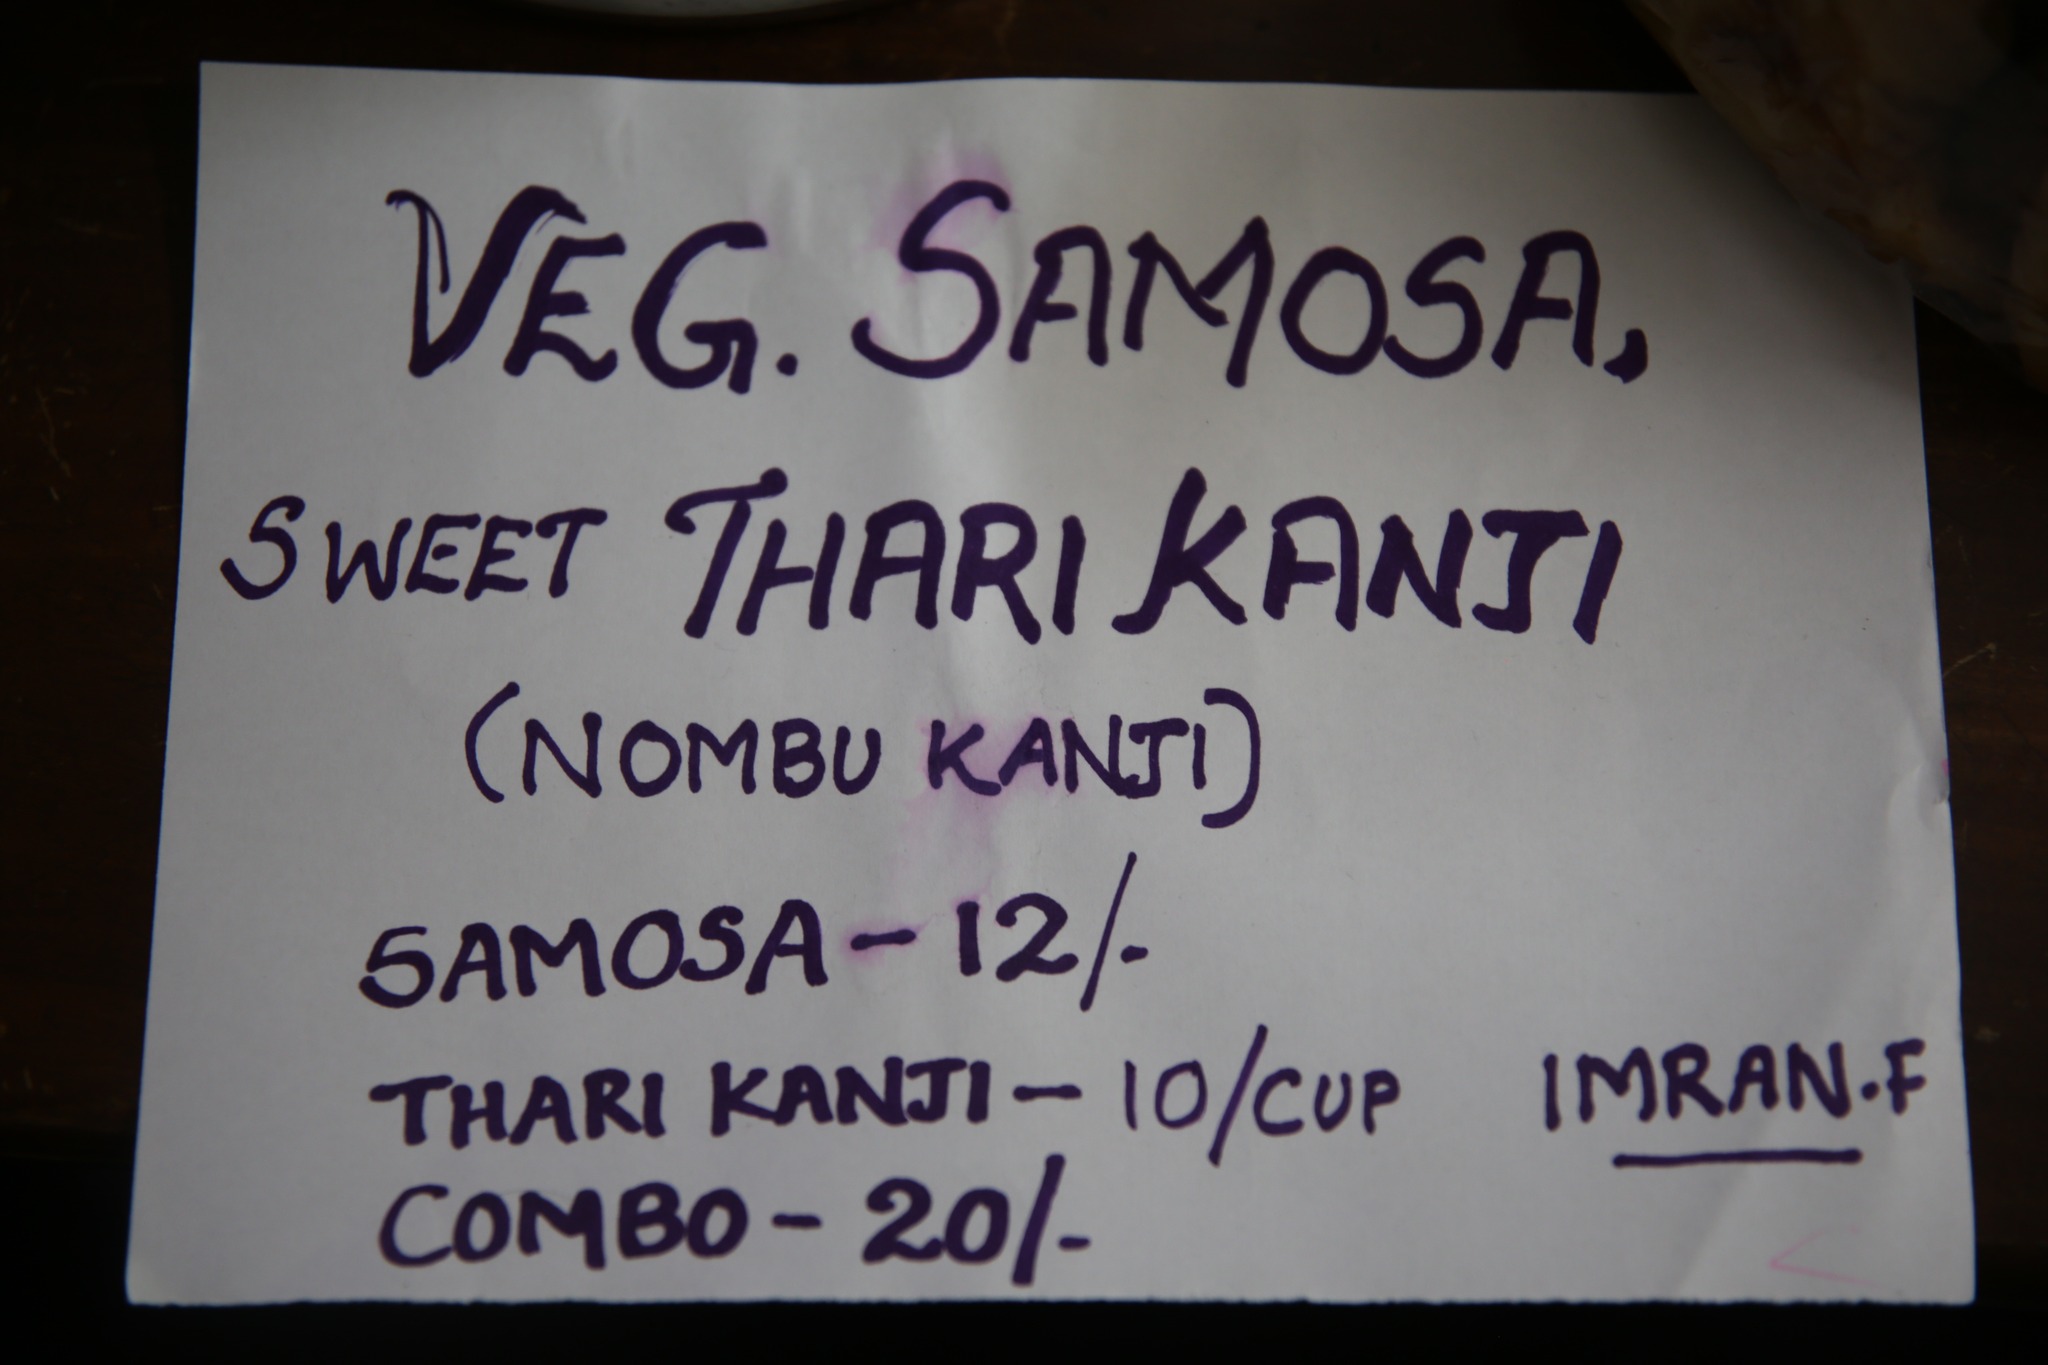 VEG. SAMOSA.
SWEET THARI KANJI
(NOMBU KANJI)
SAMOSA - 12/-
THARI KANJI - 10/CUP
IMRAN.F
COMBO - 20/-